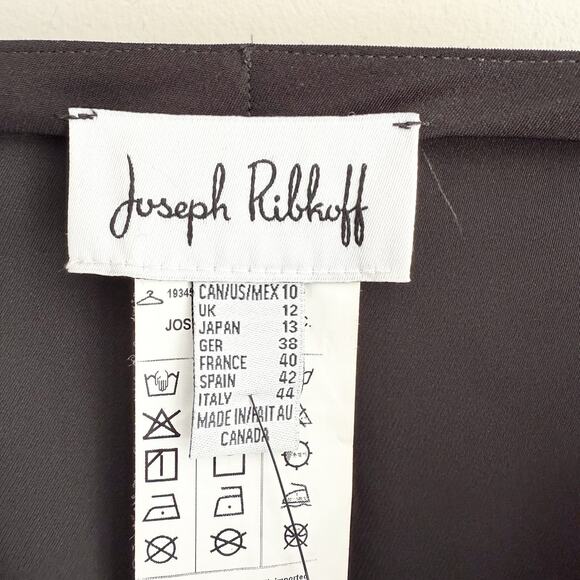 Joseph Ribkoff
CAN/US/MEX 10
UK 12
JAPAN 13
GER 38
FRANCE 40
SPAIN 42
ITALY 44
MADE IN/FAIT AU
CANADA
JOS